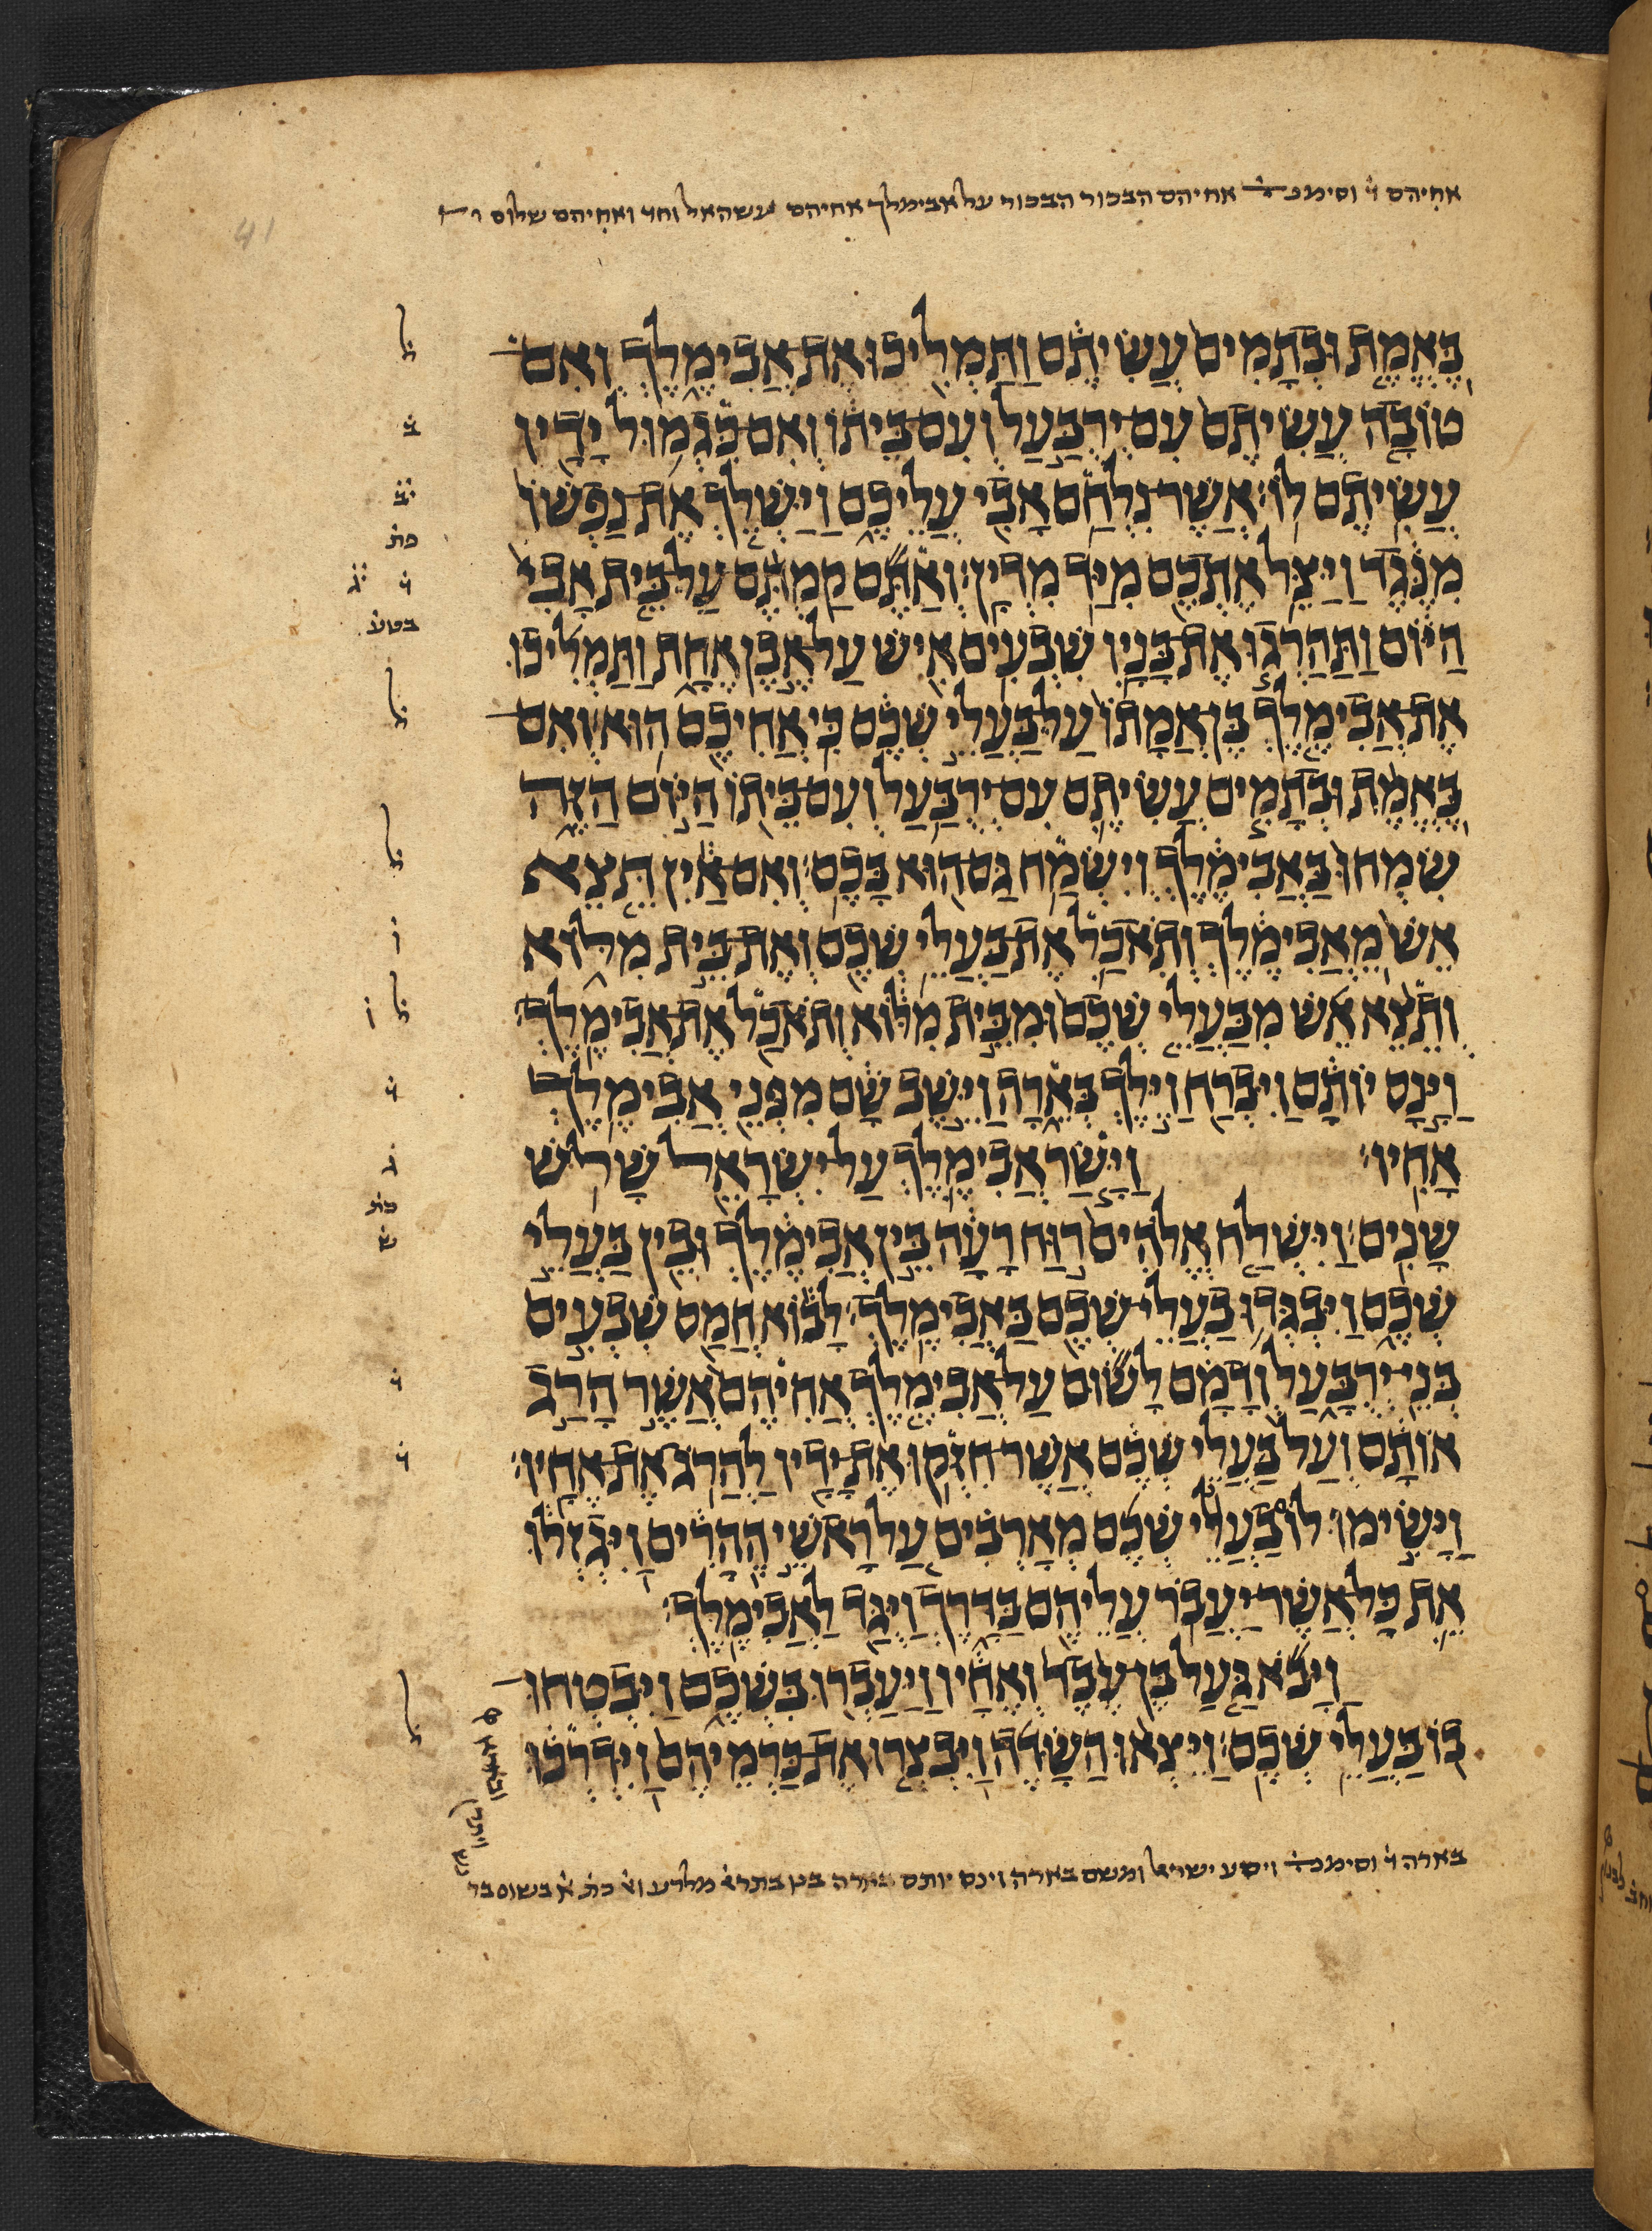 אחיהם ד וסימנ אחיהם הבכור הבכור על אבימלך אחיהם עשהאל וחד ואחיהם שלום
41
בֶּאֱמֶת וּבְתָמִים עֲשִׂיתֶם וַתַּמְלִיכוּ אֶת אֲבִימֶלֶךְ וְאִם
טוֹבָה עֲשִׂיתֶם עִם יְרֻבַּעַל וְעִם בֵּיתוֹ וְאִם כִּגְמוּל יָדָיו
עֲשִׂיתֶם לוֹ׃ אֲשֶׁר נִלְחַם אָבִי עֲלֵיכֶם וַיַּשְׁלֵךְ אֶת נַפְשׁוֹ
מִנֶּגֶד וַיַּצֵּל אֶתְכֶם מִיַּד מִדְיָן׃ וְאַתֶּם קַמְתֶּם עַל בֵּית אָבִי
הַיּוֹם וַתַּהַרְגוּ אֶת בָּנָיו שִׁבְעִים אִישׁ עַל אֶבֶן אֶחָת וַתַּמְלִיכוּ
אֶת אֲבִימֶלֶךְ בֶּן אֲמָתוֹ עַל בַּעֲלֵי שְׁכֶם כִּי אֲחִיכֶם הוּא׃ וְאִם
בֶּאֱמֶת וּבְתָמִים עֲשִׂיתֶם עִם יְרֻבַּעַל וְעִם בֵּיתוֹ הַיּוֹם הַזֶּה
שִׂמְחוּ בַּאֲבִימֶלֶךְ וְיִשְׂמַח גַּם הוּא בָּכֶם׃ וְאִם אַיִן תֵּצֵא
אֵשׁ מֵאֲבִימֶלֶךְ וְתֹאכַל אֶת בַּעֲלֵי שְׁכֶם וְאֶת בֵּית מִלּוֹא
וְתֵצֵא אֵשׁ מִבַּעֲלֵי שְׁכֶם וּמִבֵּית מִלּוֹא וְתֹאכַל אֶת אֲבִימֶלֶךְ׃
וַיָּנָס יוֹתָם וַיִּבְרַח וַיֵּלֶךְ בְּאֵרָה וַיֵּשֶׁב שָׁם מִפְּנֵי אֲבִימֶלֶךְ
אָחִיו׃ וַיָּשַׂר אֲבִימֶלֶךְ עַל יִשְׂרָאֵל שָׁלֹשׁ
שָׁנִים׃ וַיִּשְׁלַח אֱלֹהִים רוּחַ רָעָה בֵּין אֲבִימֶלֶךְ וּבֵין בַּעֲלֵי
שְׁכֶם וַיִּבְגְּדוּ בַעֲלֵי שְׁכֶם בַּאֲבִימֶלֶךְ׃ לָבוֹא חֲמַס שִׁבְעִים
בְּנֵי יְרֻבָּעַל וְדָמָם לָשׂוּם עַל אֲבִימֶלֶךְ אֲחִיהֶם אֲשֶׁר הָרַג
אוֹתָם וְעַל בַּעֲלֵי שְׁכֶם אֲשֶׁר חִזְּקוּ אֶת יָדָיו לַהֲרֹג אֶת אֶחָיו׃
וַיָּשִׂימוּ לוֹ בַעֲלֵי שְׁכֶם מְאָרְבִים עַל רָאשֵׁי הֶהָרִים וַיִּגְזְלוּ
אֵת כָּל אֲשֶׁר יַעֲבֹר עֲלֵיהֶם בַּדָּרֶךְ וַיֻּגַּד לַאֲבִימֶלֶךְ׃
וַיָּבֹא גַּעַל בֶּן עֶבֶד וְאֶחָיו וַיַּעַבְרוּ בִּשְׁכֶם וַיִּבְטְחוּ
בוֹ בַּעֲלֵי שְׁכֶם׃ וַיֵּצְאוּ הַשָּׂדֶה וַיִּבְצְרוּ אֶת כַּרְמֵיהֶם וַיִּדְרְכוּ
בארה ד וסימנ ויסע ישראל ומשם בארה וינס יותם בארה